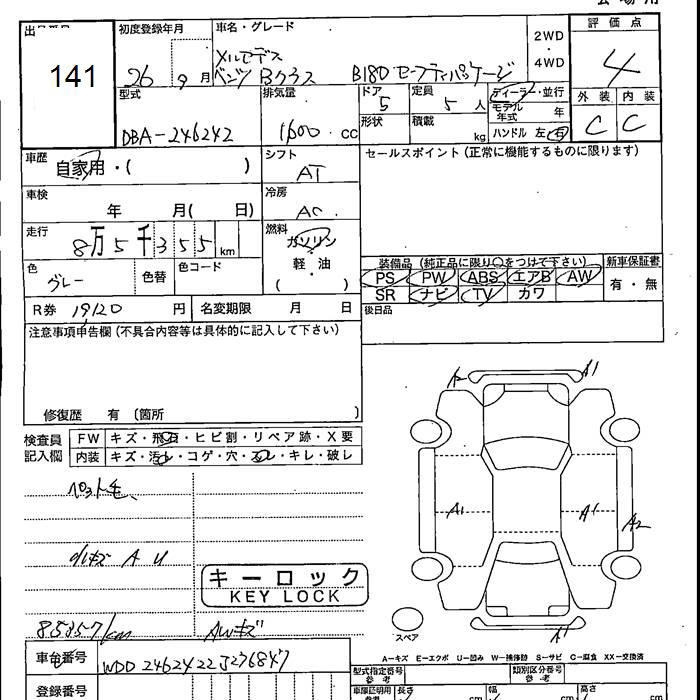 141
初度登録年月
26 9月
車名・グレード
メルセデス
ベンツ Bクラス B180 セーフティパッケージ
2WD
・
4WD
評価点
4
型式
DBA-246242
排気量
1600 cc
ドア
5
定員
5 人
形状
積載
kg
ディーラー・並行
モデル年式 年
ハンドル 左・右
外装 内装
C C
車歴
自家用・( )
シフト
AT
セールスポイント(正常に機能するものに限ります)
車検
年 月( 日)
冷房
AC
走行
8万5千355 km
燃料
ガソリン
軽・油
( )
色
グレー
色替
色コード
装備品(純正品に限り○をつけて下さい)
新車保証書
PS PW ABS エアB AW
有・無
SR ナビ TV カワ
R券 19120 円
名変期限 月 日
後日品
注意事項申告欄(不具合内容等は具体的に記入して下さい)
修復歴 有 (箇所 )
検査員
記入欄
FW キズ・飛石・ヒビ割・リペア跡・X要
内装 キズ・汚れ・コゲ・穴・スレ・キレ・破レ
ペットモ
小キズ A U
キーロック
KEY LOCK
85357km
AWキズ
A2 A1
A1 A1 A2
A1
スペア
A-キズ E-エクボ U-凹み W-補修跡 S-サビ C-腐食 XX-交換済
車台番号
WDD2462422J276847
登録番号
型式指定番号
参考
類別区分番号
参考
車庫証明用
参考
長さ cm
幅 cm
高さ cm